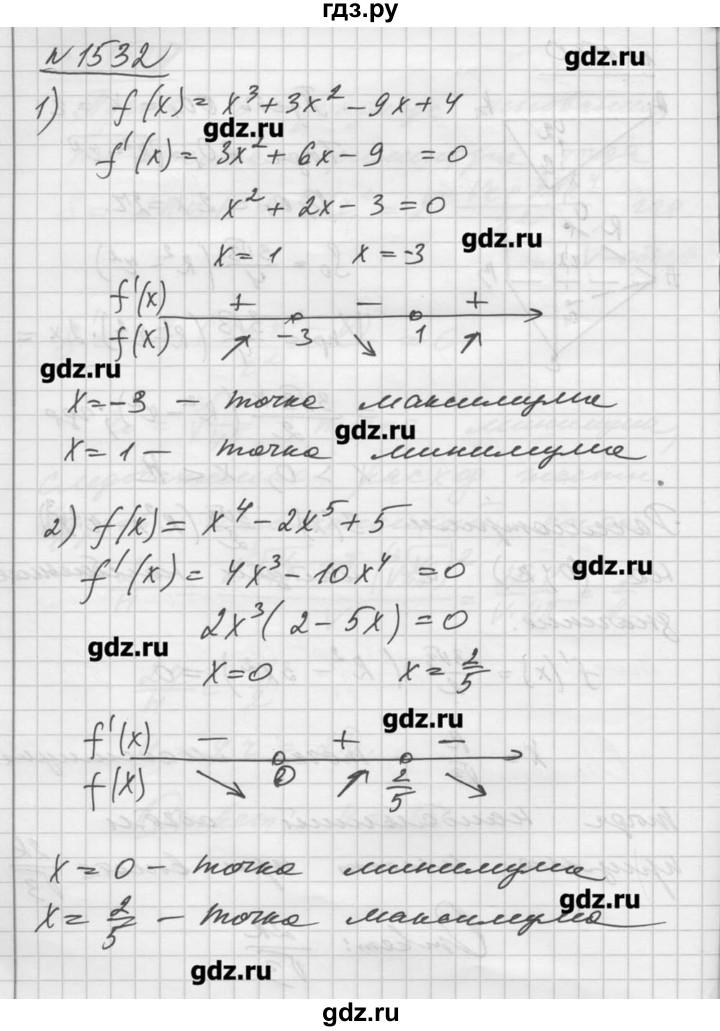 гдз.ру
№1532
gdz.ru
1) f(x) = x³ + 3x² - 9x + 4
gdz.ru
f'(x) = 3x² + 6x - 9 = 0
x² + 2x - 3 = 0
gdz.ru
x = 1 x = -3
f'(x) + - +
f(x) ↗ -3 ↘ 1 ↗
gdz.ru
x = -3 - точка максимума
gdz.ru
x = 1 - точка минимума
2) f(x) = x⁴ - 2x⁵ + 5
gdz.ru
f'(x) = 4x³ - 10x⁴ = 0
2x³(2 - 5x) = 0
gdz.ru
x = 0 x = 2/5
gdz.ru
f'(x) - + -
f(x) ↘ 0 ↗ 2/5 ↘
x = 0 - точка минимума
gdz.ru
x = 2/5 - точка максимума
gdz.ru
gdz.ru